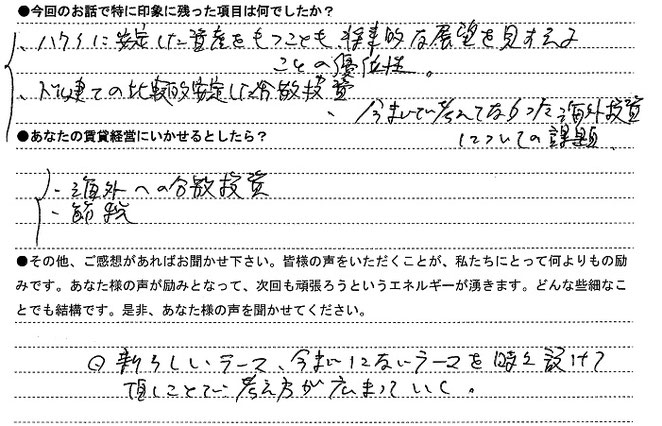 ●今回のお話で特に印象に残った項目は何でしたか？
、ハワイに安定した資産をもつことも、将来的な展望を見すえる
ことの優位性。
、ドル建ての比較的安定した分散投資
、今まで考えてなかった海外投資
●あなたの賃貸経営にいかせるとしたら？
についての課題、
- 海外への分散投資
- 節税
●その他、ご感想があればお聞かせ下さい。皆様の声をいただくことが、私たちにとって何よりもの励
みです。あなた様の声が励みとなって、次回も頑張ろうというエネルギーが湧きます。どんな些細なこ
とでも結構です。是非、あなた様の声を聞かせてください。
新らしいテーマ、今までにないテーマを時々設けて
頂くことで考え方が広まっていく。